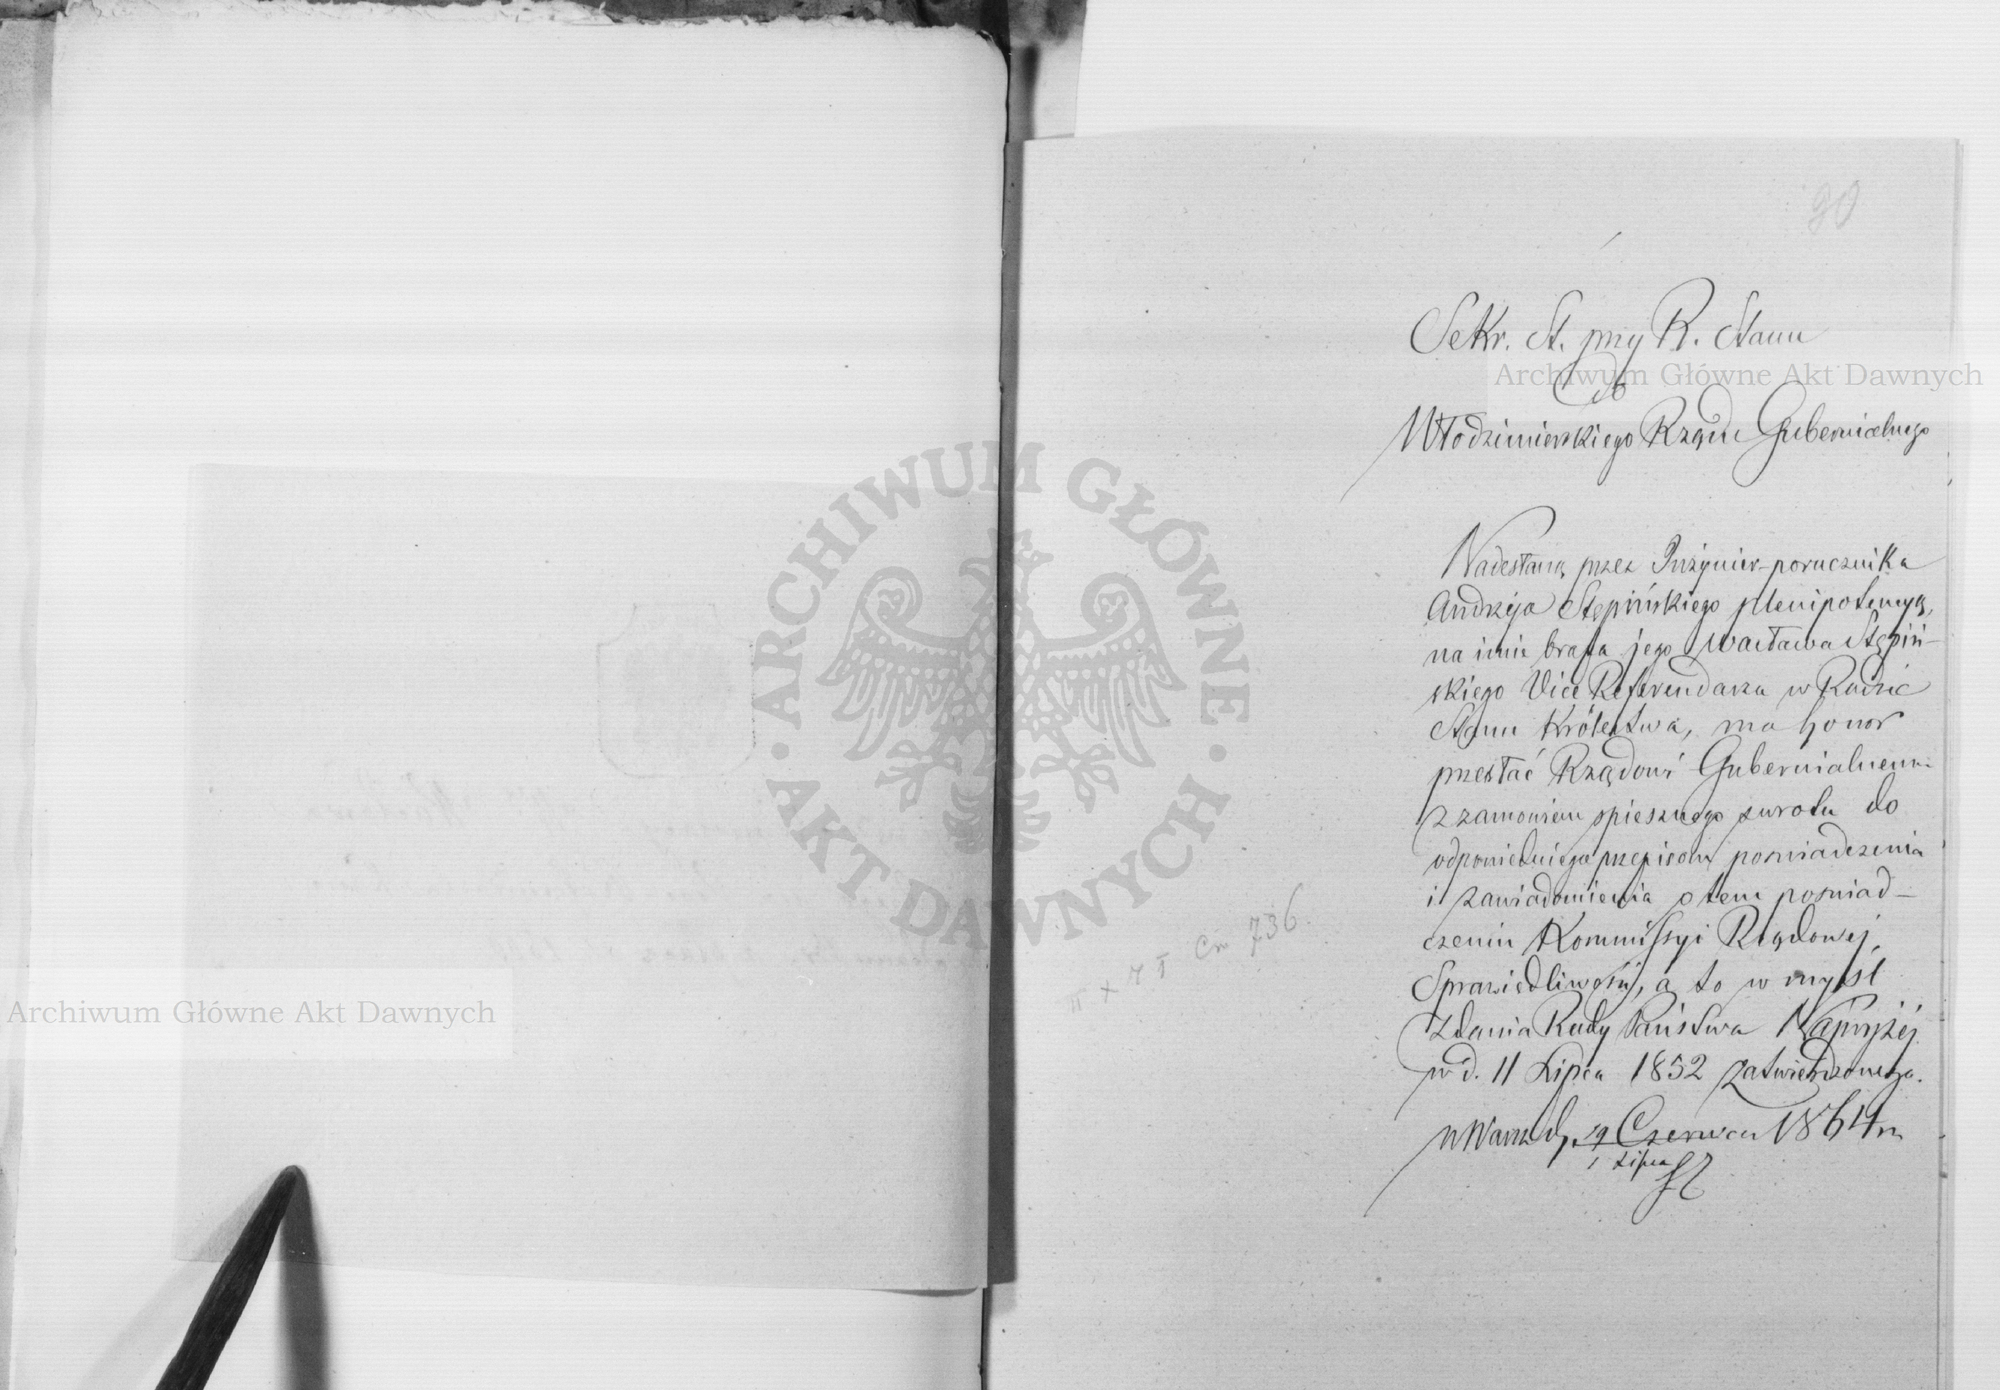 90
Sekr. St. przy R. Stanu
Do
Włodzimierskiego Rządu Gubernialnego
Nadesłaną przez Inżynier-porucznika
Andrzeja Stępińskiego plenipotencyą,
na imie brata jego Wacława Stępiń-
skiego Vice Referendarza w Radzie
Stanu Królestwa, ma honor
przesłać Rządowi Gubernialnemu
z zamówieniem spiesznego zwrotu do
odpowiedniego przepisom poświadczenia
i zawiadomienia o tem poświad-
czeniu Kommissyi Rządowej
Sprawiedliwości, a to w myśl
zdania Rady Państwa Najwyżej
w d. 11 Lipca 1852 zatwierdzonego.
w Warsz. d. 19 Czerwca 1864 r.
1 Lipca
736
Archiwum Główne Akt Dawnych
Archiwum Główne Akt Dawnych
ARCHIWUM GŁÓWNE
AKT DAWNYCH